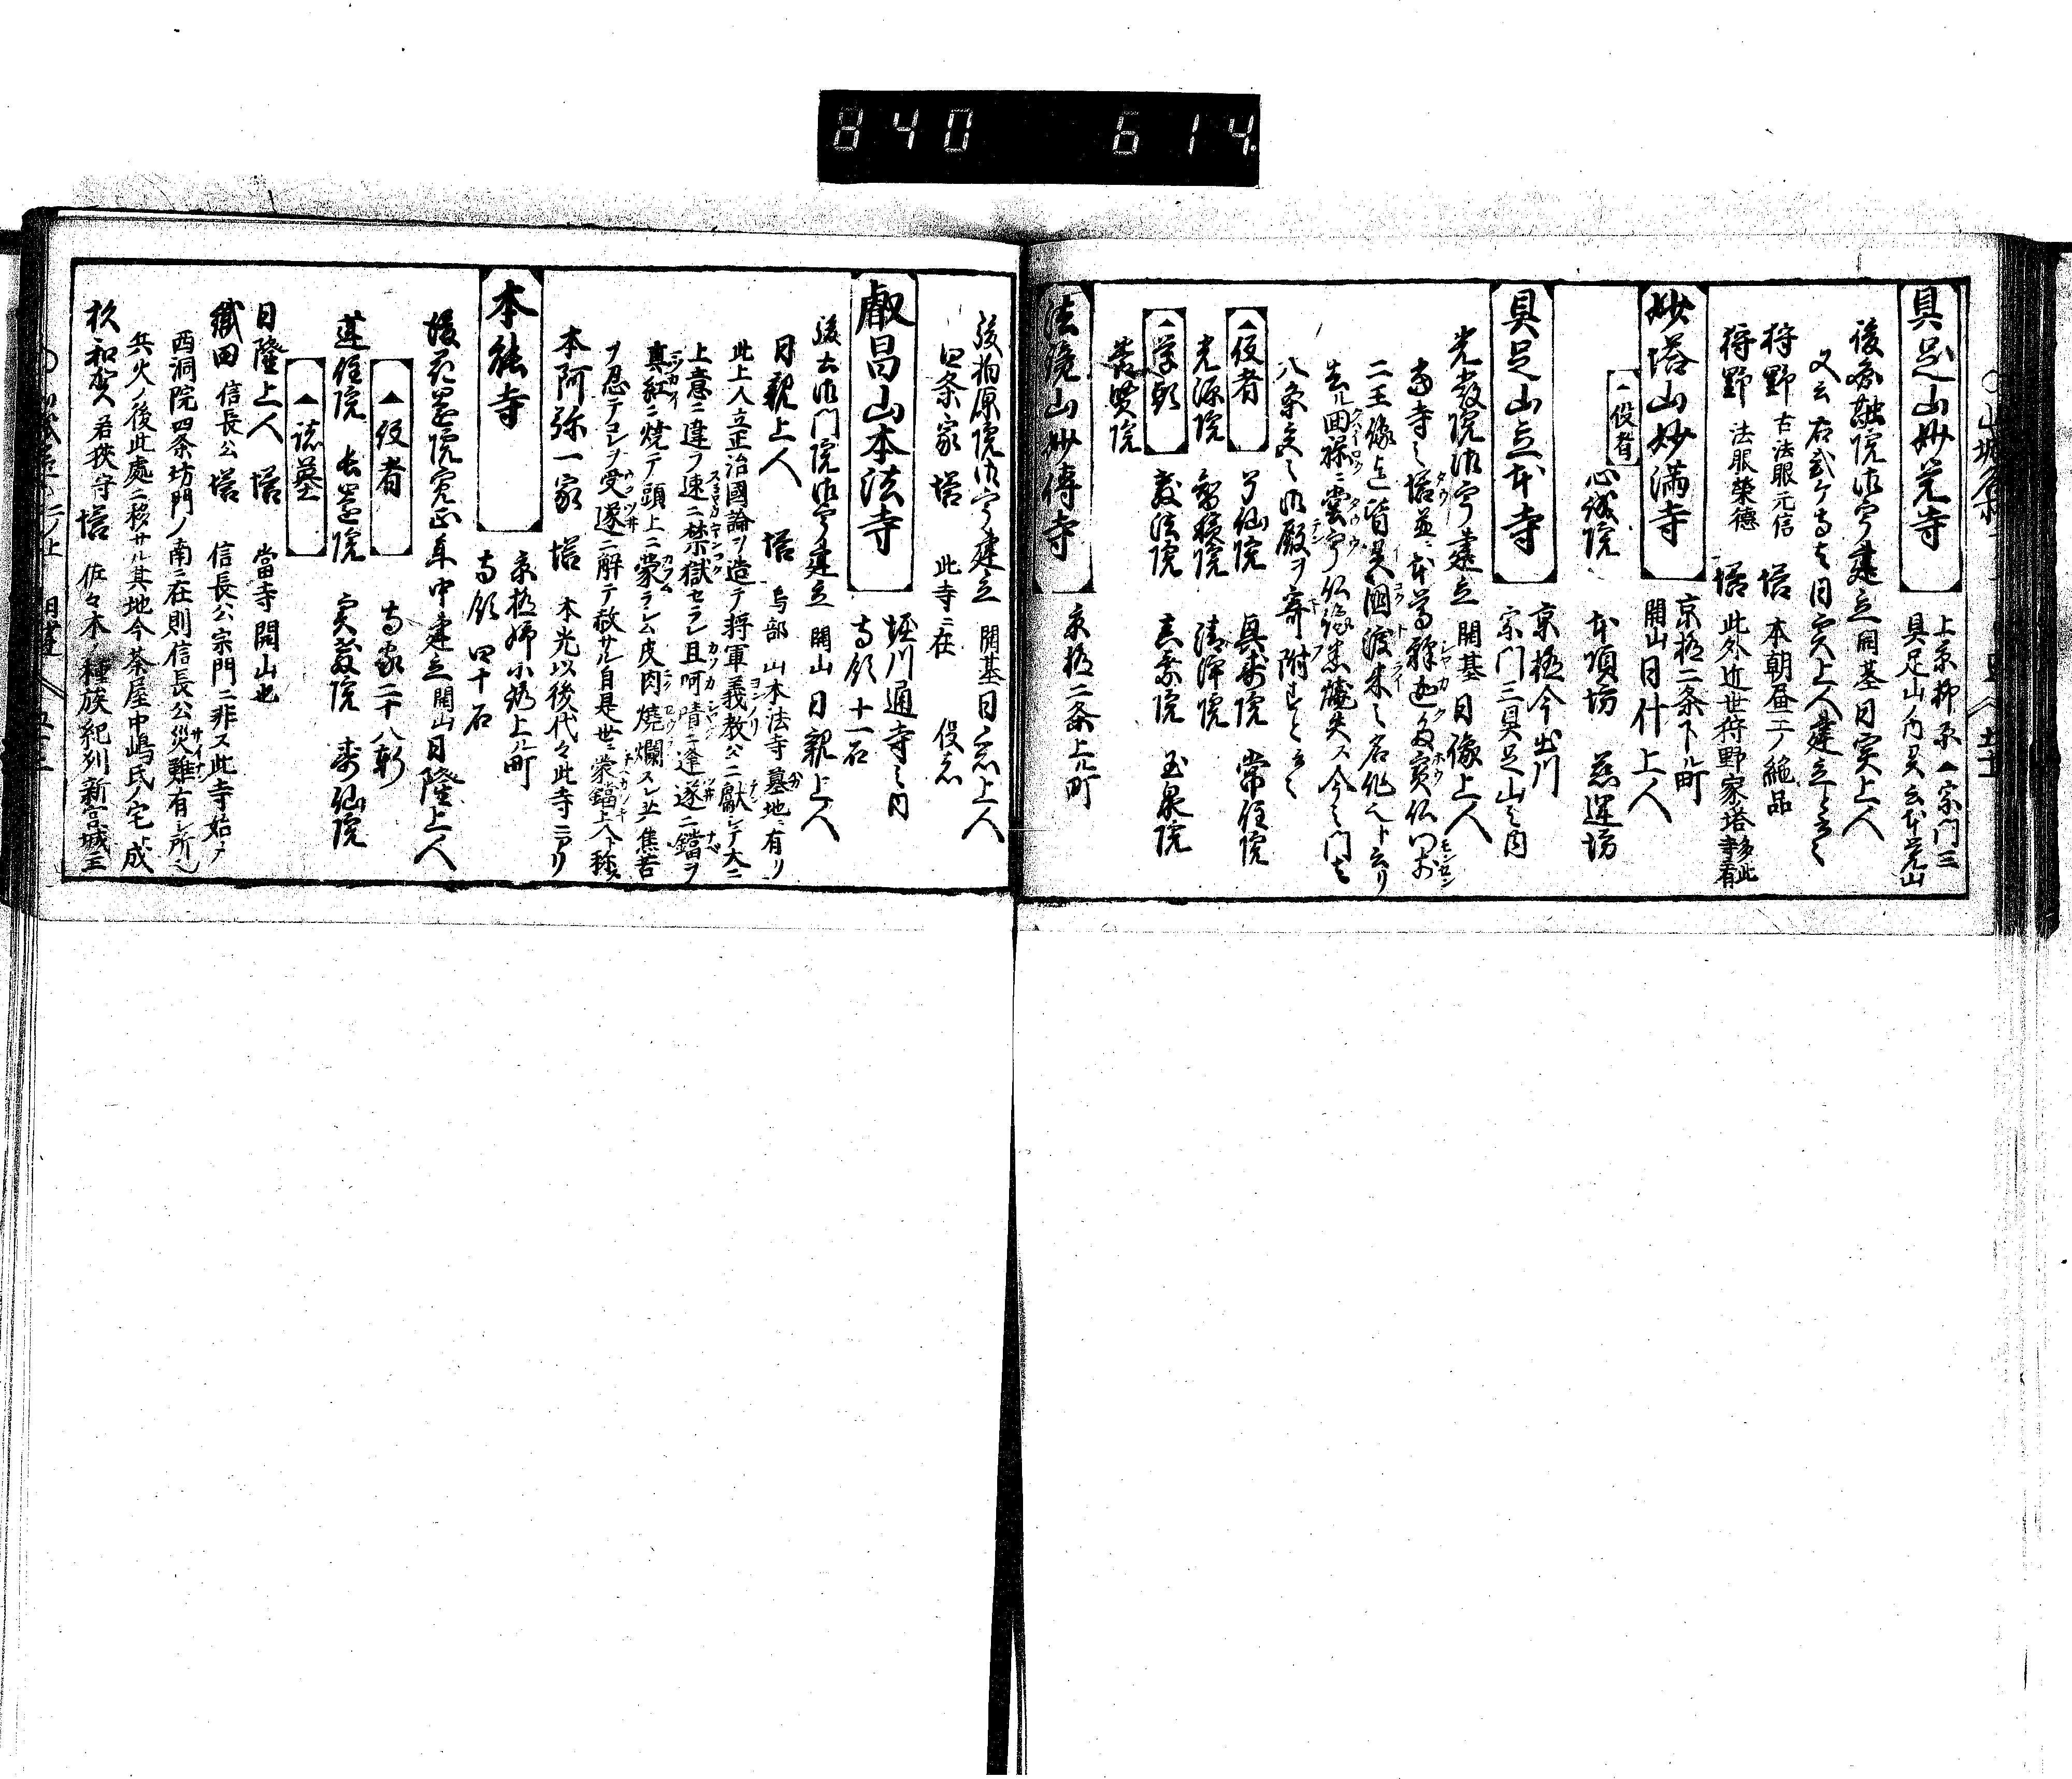 840 614.
具足山妙覚寺
上京柳原▲宗門三
具足山ノ内又云本覚山
後圓融院御宇建立 開基日実上人
又云右弐ケ寺は日実上人建立と云々
狩野 古法眼元信 塔 本朝畫工ノ絶品
狩野 法眼榮德 塔 此外近世狩野家塔多此寺有
妙塔山妙満寺
京極二条下ル町
開山日什上人
▲役者
心城院 本順坊 慈運坊
具足山立本寺
京極今出川
宗門三具足山之内
光嚴院御宇建立 開基日像上人
当寺之塔並ニ本尊釈迦多寶仏門前
二王像迄皆異國渡来之名作也ト云リ
去ル回禄ニ堂宇仏像悉燒失ス今之門は
八条宮之御殿ヲ寄附すと云々
▲役者
了仙院 眞如院 常住院
光源院 智積院 清浄院
▲学頭
教法院 玉泉院
善賢院
法鏡山妙傳寺
京極二条上ル町
後柏原院御宇建立 開基日意上人
四条家 塔 此寺ニ在 役者
叡昌山本法寺
堀川通寺之内
寺領十一石
後土御門院御宇建立 開山日親上人
日親上人 塔 鳥部山本法寺墓地ニ有リ
此上人立正治國論ヲ造テ将軍義教公ニ獻シテ大ニ
上意ニ違ヲ速ニ禁獄セラレ且呵嘖ニ逢遂ニ鐺ヲ
真紅ニ焼テ頭上ニ蒙ラシム皮肉燒爛スレ共焦苦
ヲ忍テコレヲ受遂ニ解テ赦サル自是世ニ蒙鐺上人ト称ス
本阿弥一家 塔 本光以後代々此寺ニアリ
本能寺
京極姉小路上ル町
寺領四十石
後花園院寛正年中建立 開山日隆上人
▲役者
寺家二十八軒
蓮住院 長遠院 実教院 寿仙院
▲諸墓
日隆上人 塔 當寺開山也
織田 信長公 塔 信長公宗門ニ非ス此寺始ノ
西洞院四条坊門ノ南ニ在則信長公災難有シ所也
兵火ノ後此處ニ移サル其地今茶屋中嶋氏ノ宅ト成
杉和賀 若狭守 塔 佐々木ノ種族紀列新宮城主